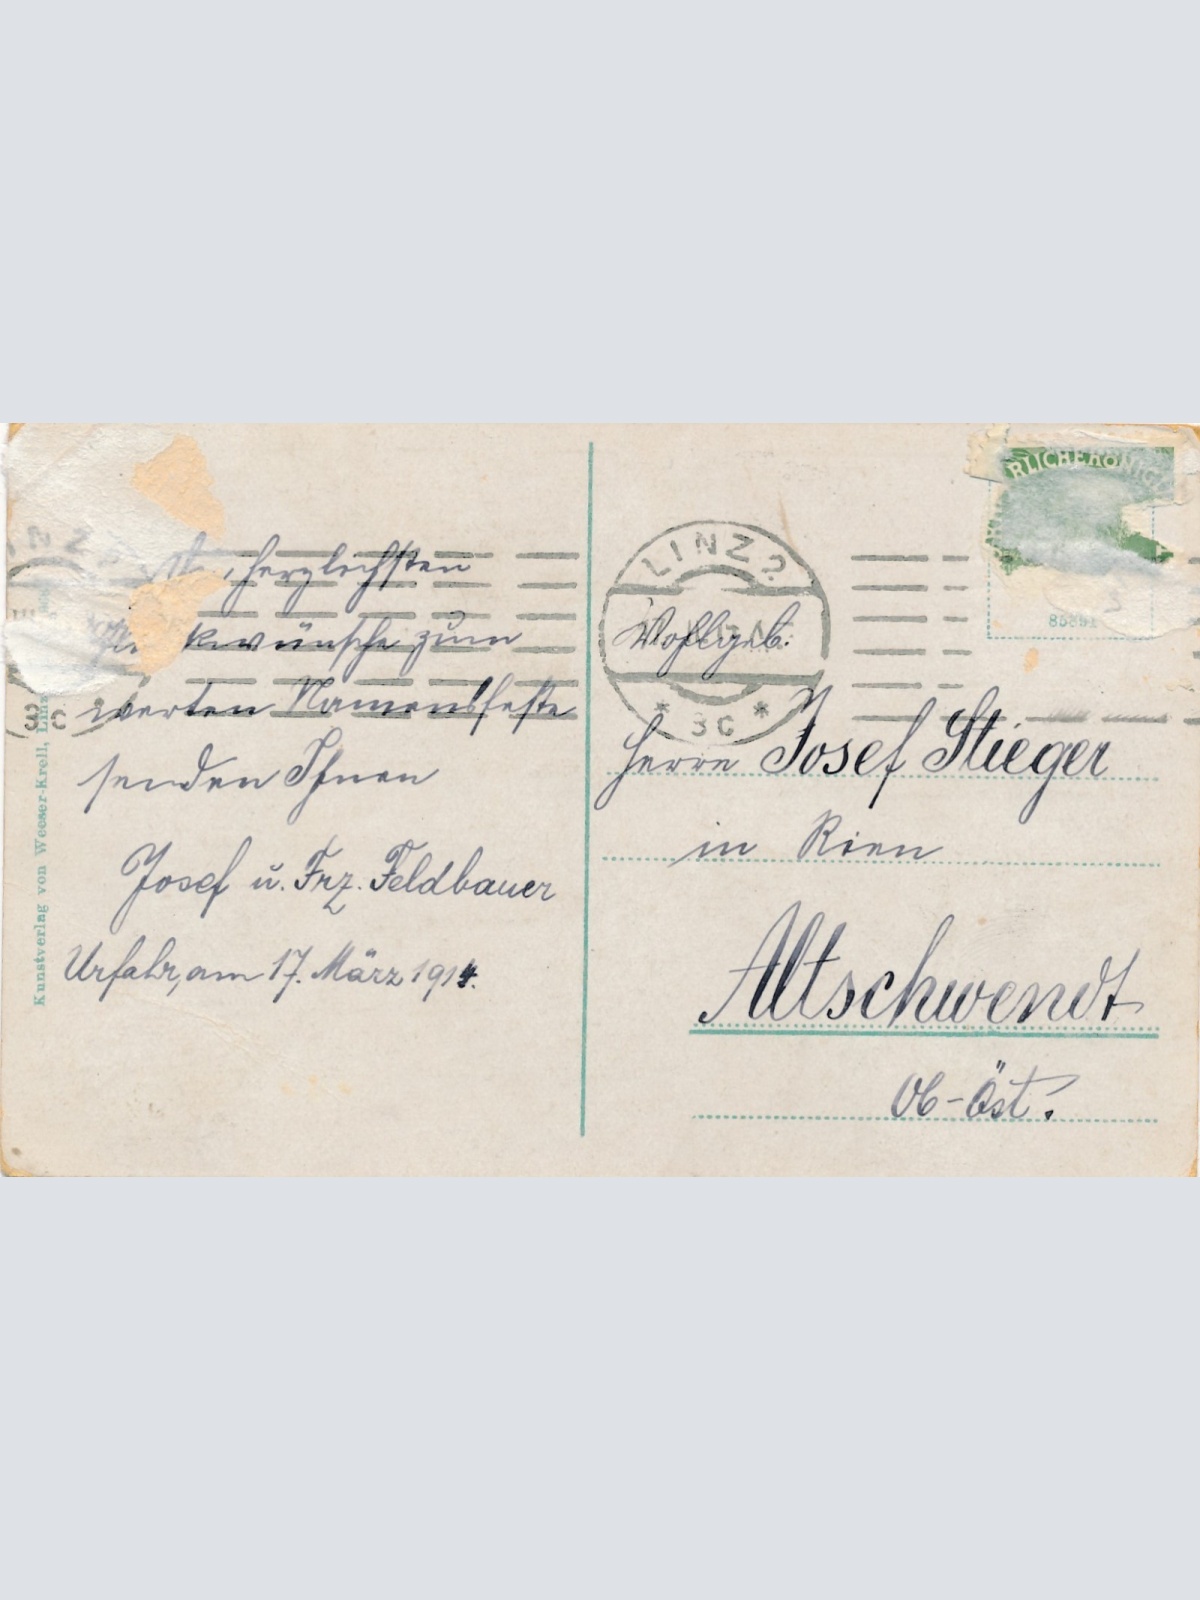 herzlichsten
wünsche zum
werten Namensfeste
senden Ihnen
Josef u. Frz. Feldbauer
Urfahr, am 17. März 1914.
Kunstverlag von Weeser-Krell, Linz
LINZ 2
* 3c *
Wohlgeb:
Herrn Josef Stieger
in Rien
Altschwendt
Ob-Öst.